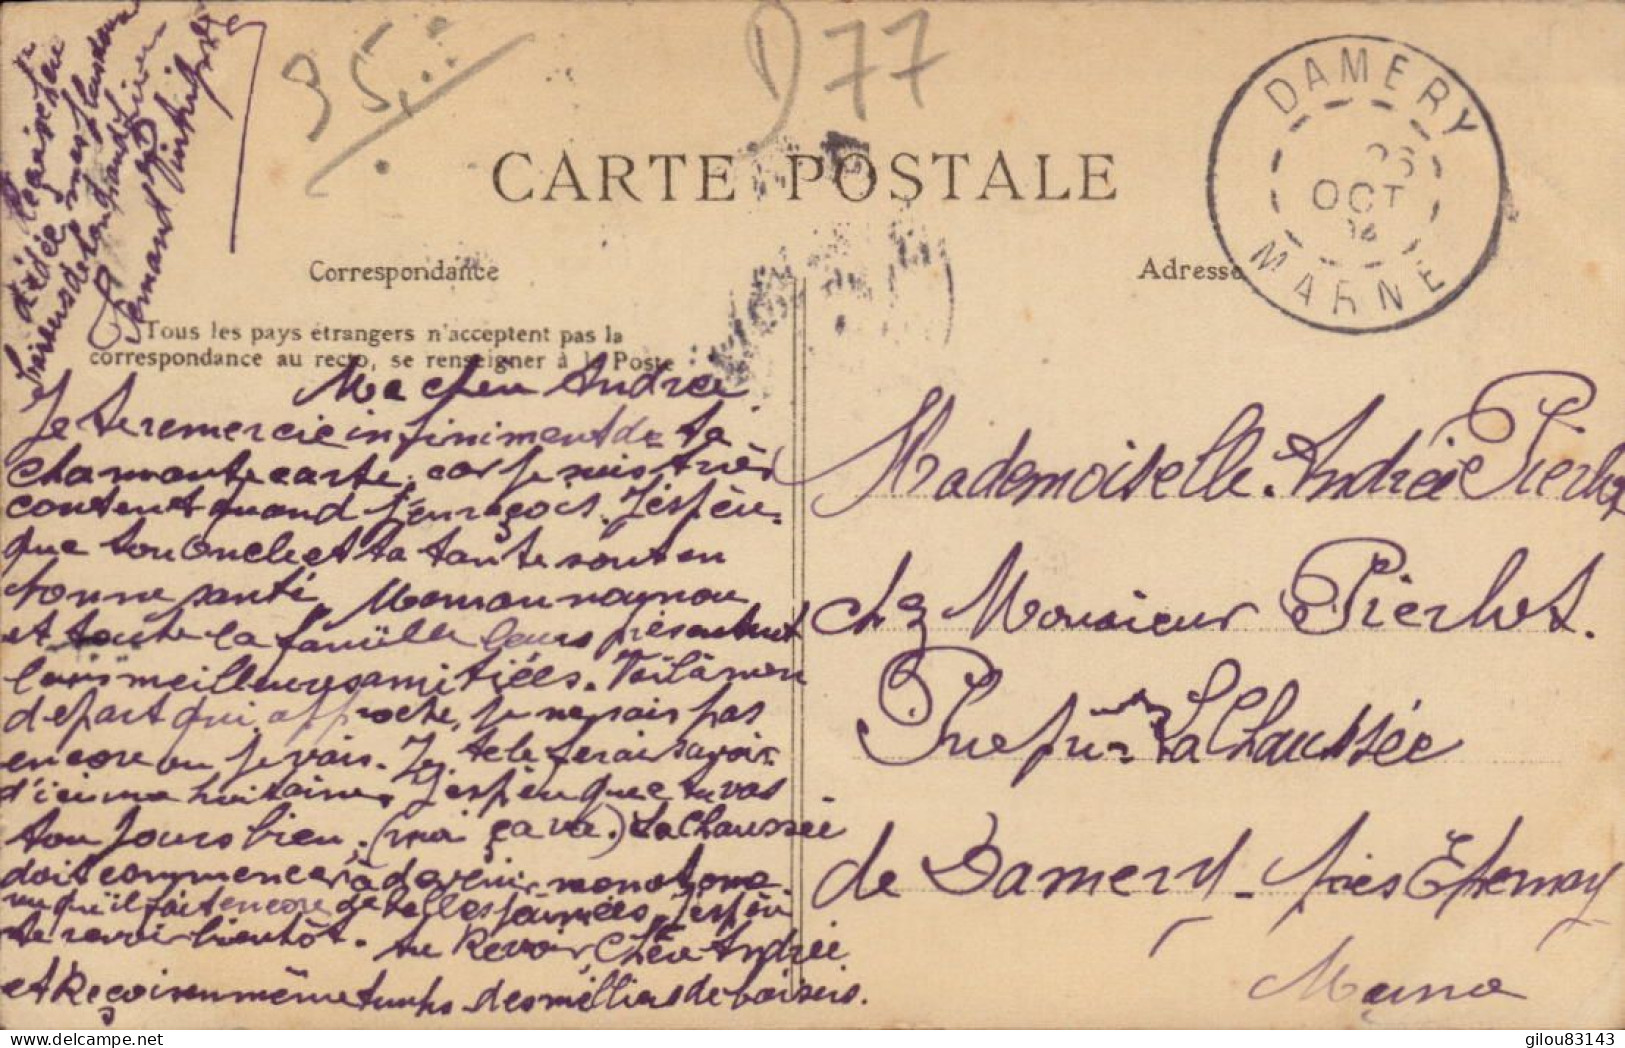 35
D77
CARTE POSTALE
Correspondance
Adresse
DAMERY
26
OCT
MARNE
Tous les pays étrangers n'acceptent pas la
correspondance au recto, se renseigner à la Poste
Ma chère Andrée
Je te remercie infiniment de ta
charmante carte, car je suis très
content quand j'en reçois. J'espère
que ton Oncle et ta tante sont en
bonne santé. Maman
et toute la famille leurs présentent
leurs meilleurs amitiées. Voilà mon
départ qui approche, je ne sais pas
encore ou je vais. Je te le ferai savoir
d'ici une huitaine. J'espère que tu vas
toujours bien. (moi ça va.) La Chaussée
doit commencer à devenir monotone
vu qu'il fait encore de belles journées. J'espère
te revoir bientôt. Au Revoir, Chère Andrée
et Reçois en même temps des milliers de baisers.
Mademoiselle Andrée Pierlot
chez Monsieur Pierlot.
La Chaussée
de Damery près Epernay
Marne
gilou83143